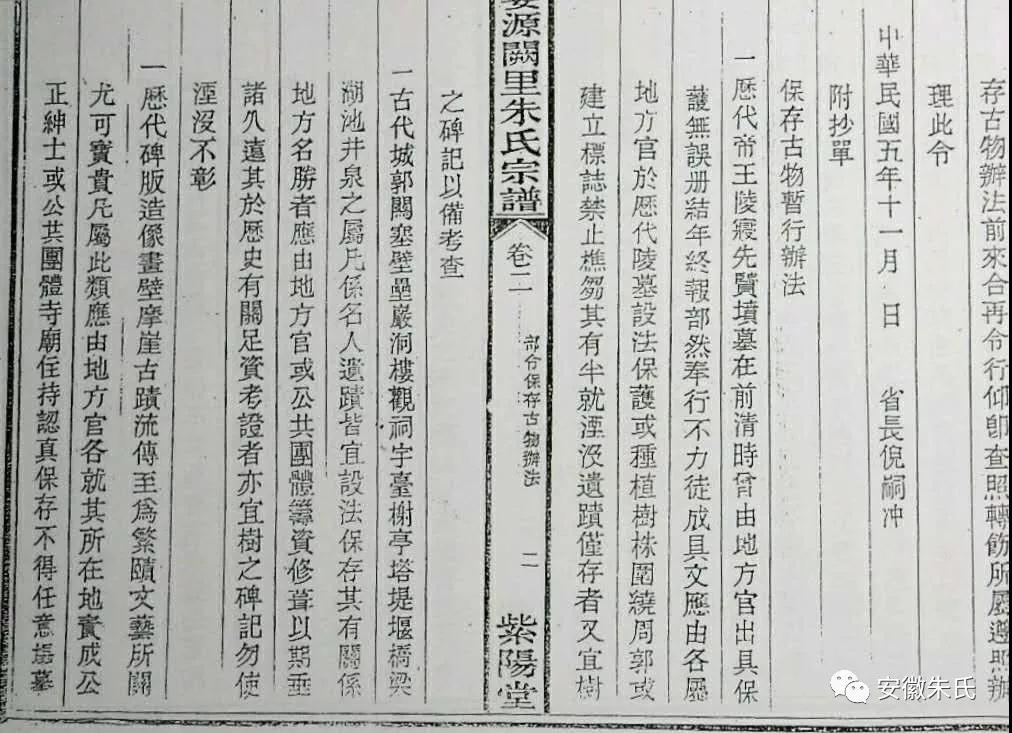 存古物辦法前來合再令行仰卽查照轉飭所屬遵照辦
理此令
中華民國五年十一月　日　　省長倪嗣冲
附抄單
保存古物暫行辦法
一歷代帝王陵寢先賢墳墓在前清時曾由地方官出具保
護無誤册結年終報部然奉行不力徒成具文應由各屬
地方官於歷代陵墓設法保護或種植樹株圍繞周郭或
建立標誌禁止樵芻其有半就湮沒遺蹟僅存者又宜樹
婺源闕里朱氏宗譜
卷二
部令保存古物辦法
二
紫陽堂
之碑記以備考查
一古代城郭關塞壁壘巖洞樓觀祠宇臺榭亭塔堤堰橋梁
湖池井泉之屬凡係名人遺蹟皆宜設法保存其有關係
地方名勝者應由地方官或公共團體籌資修葺以期垂
諸久遠其於歷史有關足資考證者亦宜樹之碑記勿使
湮沒不彰
一歷代碑版造像畫壁摩崖古蹟流傳至爲繁賾文藝所關
尤可寶貴凡屬此類應由地方官各就其所在地責成公
正紳士或公共團體寺廟住持認真保存不得任意搨摹
安徽朱氏